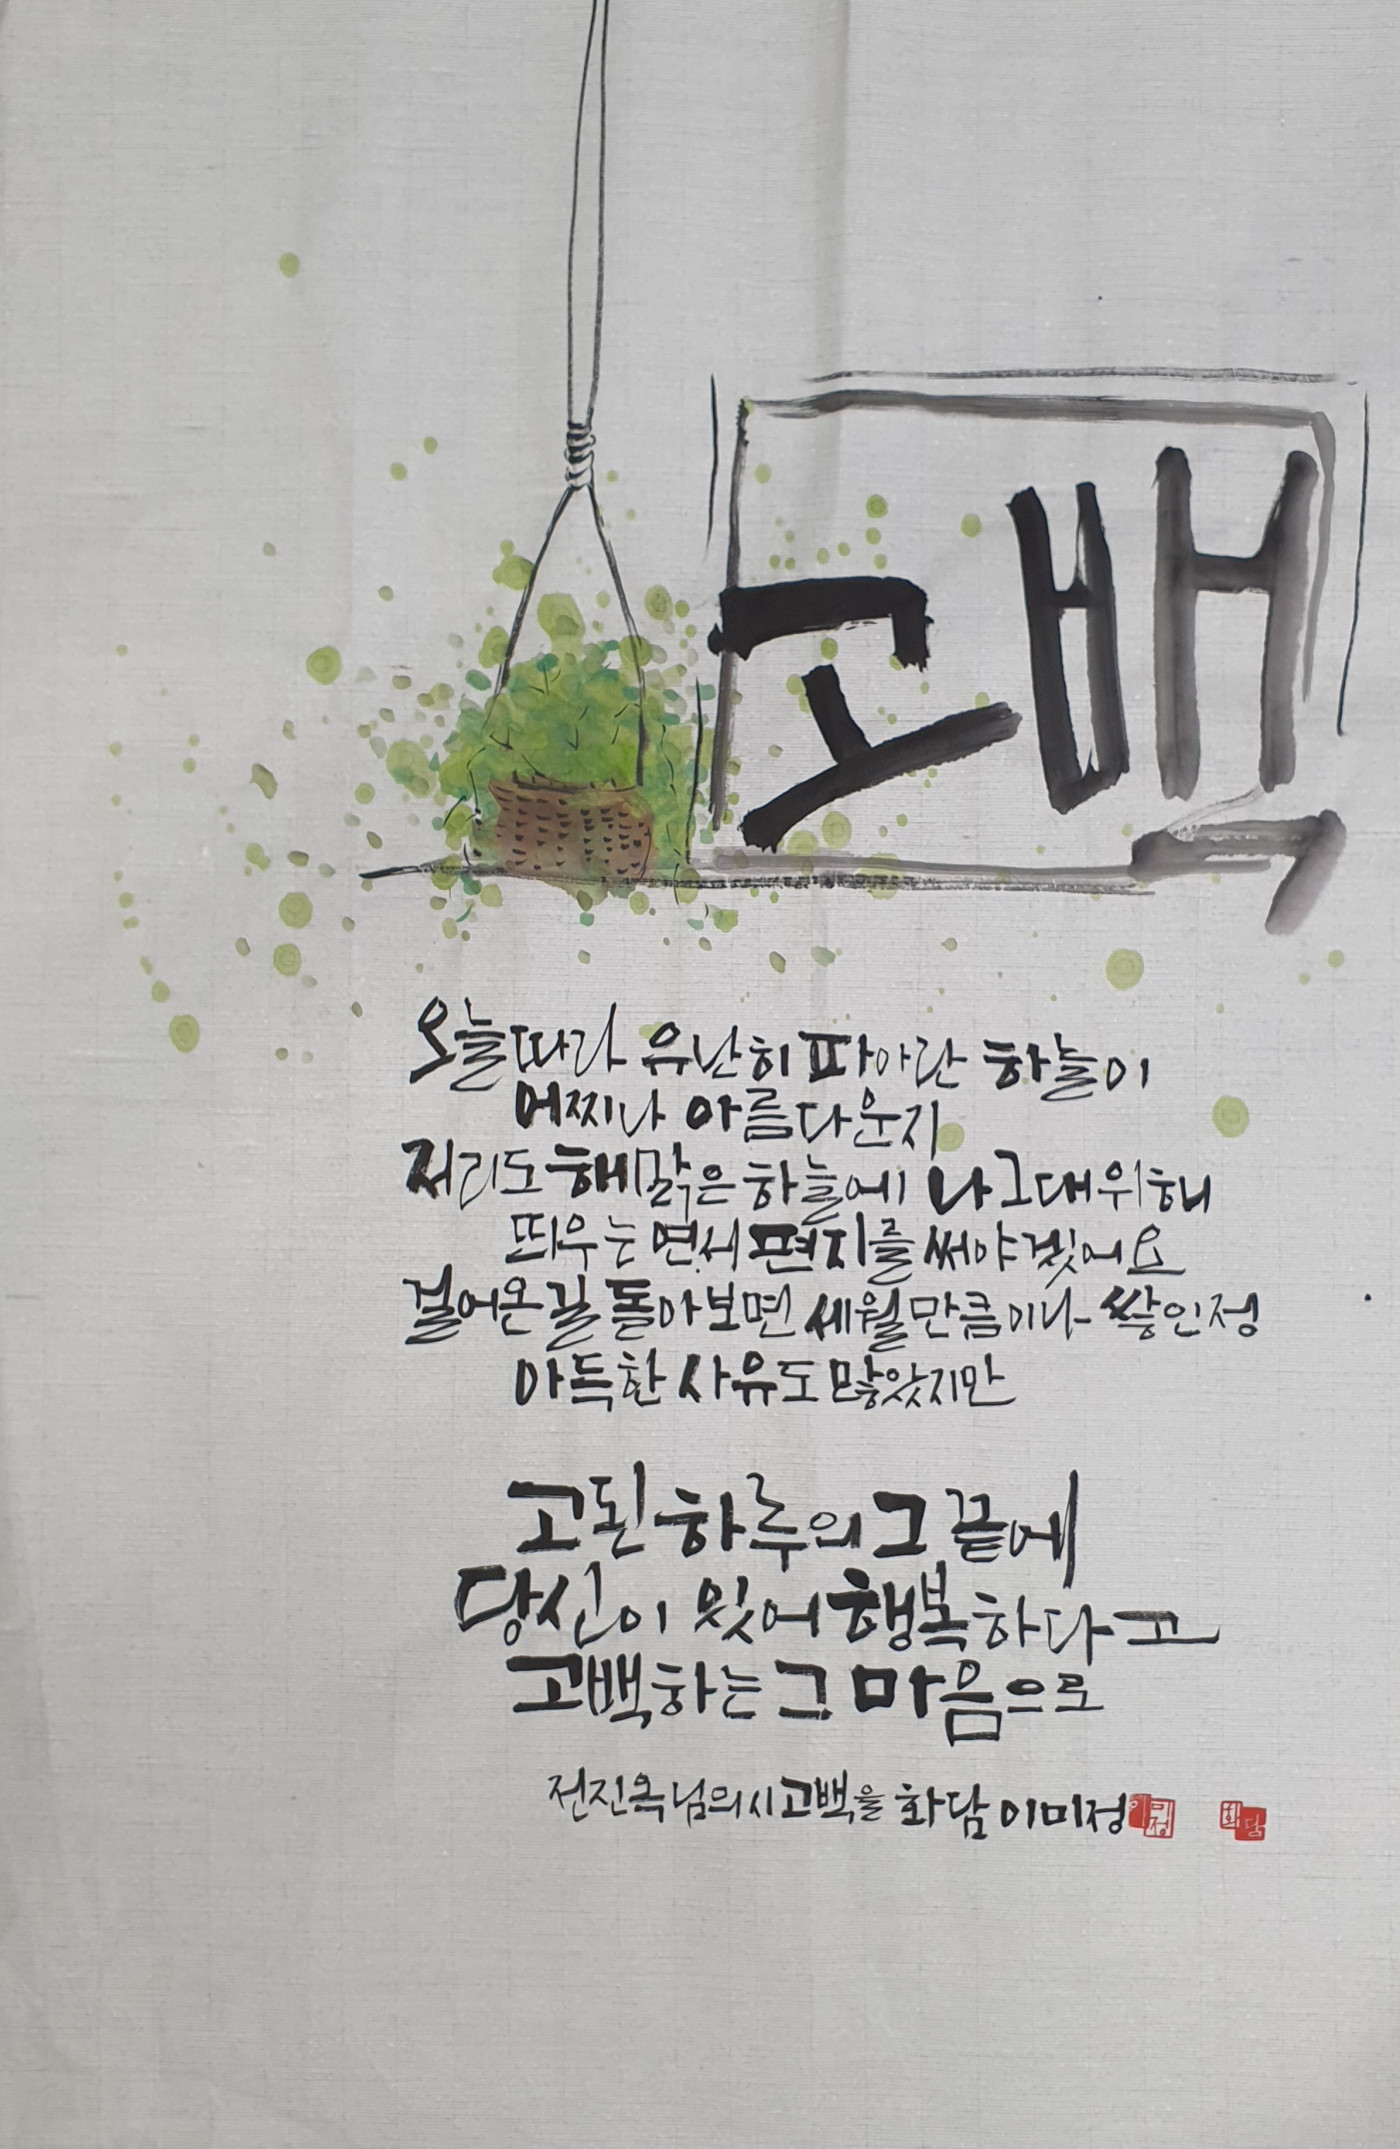 고백
오늘따라 유난히 파아란 하늘이
어찌나 아름다운지
저리도 해맑은 하늘에 나 그대 위해
띄우는 연서 편지를 써야겠어요
걸어온 길 돌아보면 세월만큼이나 쌓인 정
아득한 사유도 많았지만
고된 하루의 그 끝에
당신이 있어 행복하다고
고백하는 그 마음으로
전진옥님의 시 고백을 화담 이미정
이미정 화담